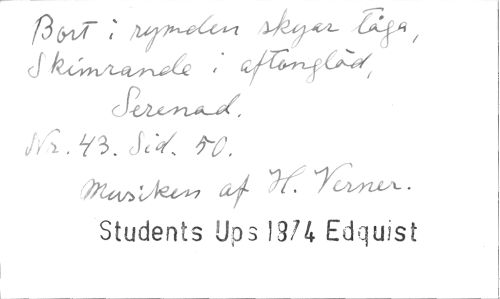 Bort i rymden skyar tåga,
Skimrande i aftonglöd,
Serenad.
Nr. 43. Sid. 50.
Musiken af H. Verner.
Students Ups 1874 Edquist